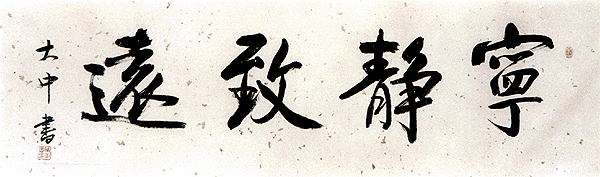 寧靜致遠
大中書